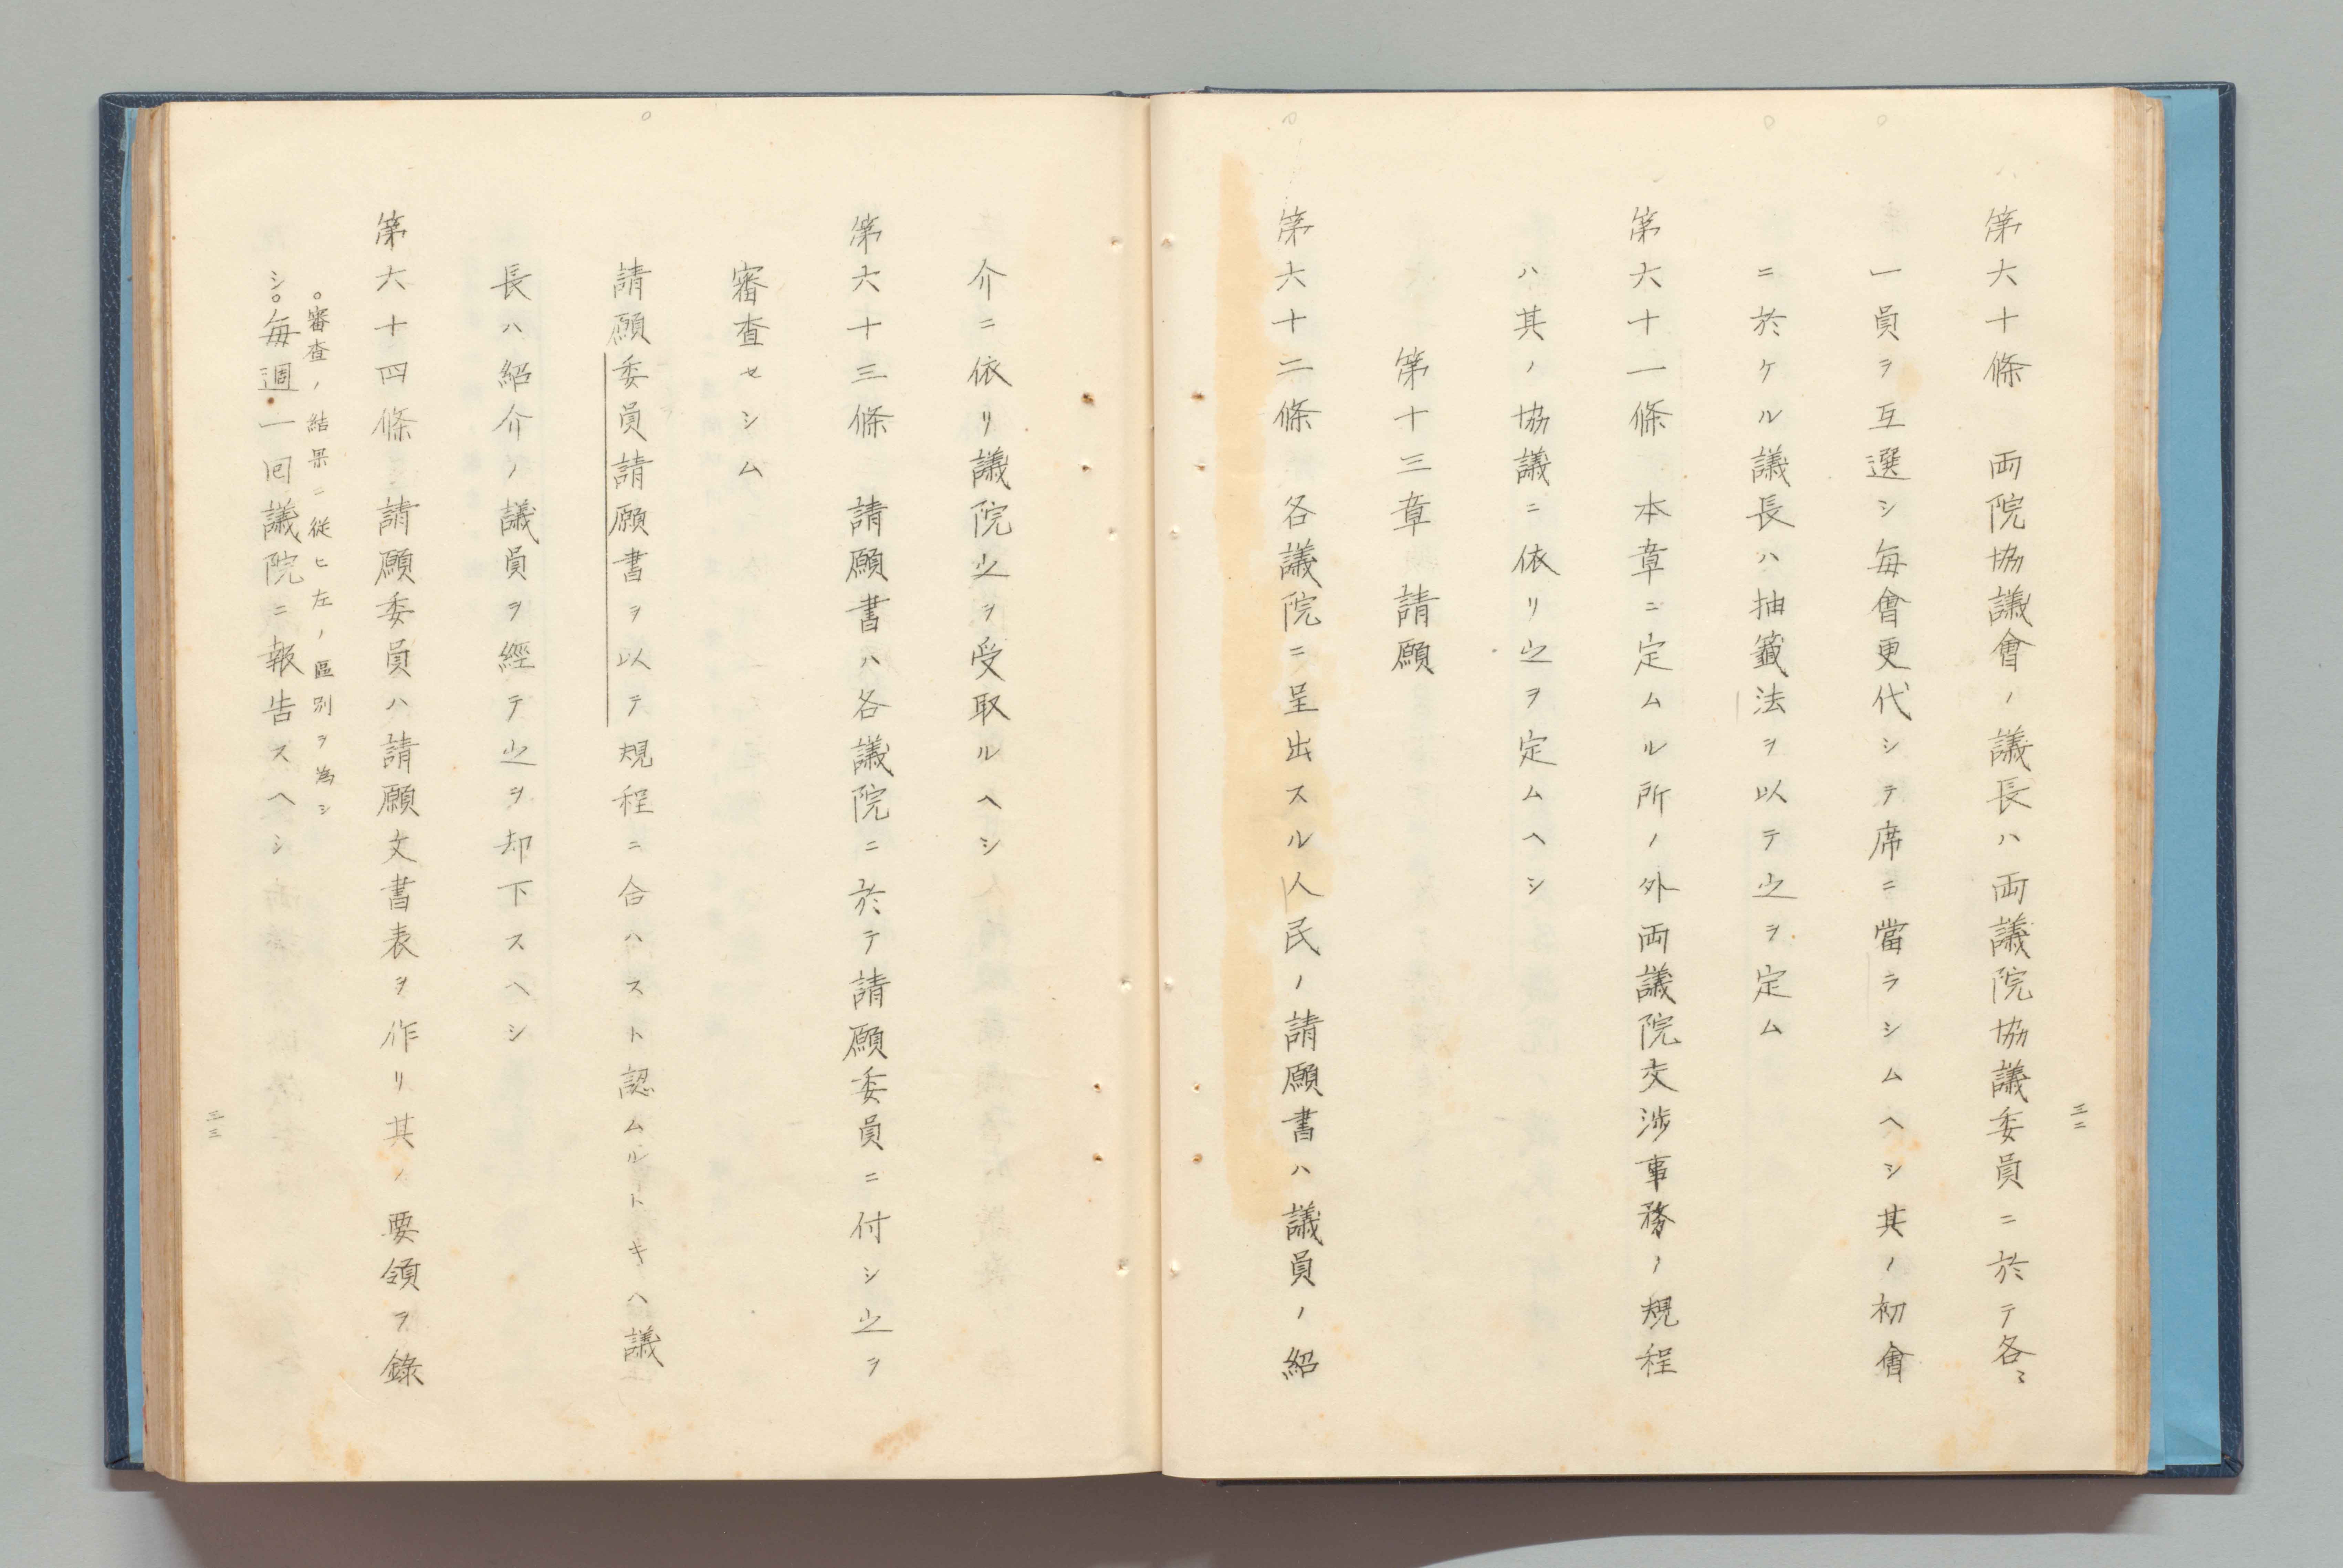 三二
第六十條　両院協議會ノ議長ハ両議院協議委員ニ於テ各〻
一員ヲ互選シ毎會更代シテ席ニ當ラシムヘシ其ノ初會
ニ於ケル議長ハ抽籤法ヲ以テ之ヲ定ム
第六十一條　本章ニ定ムル所ノ外両議院交渉事務ノ規程
ハ其ノ協議ニ依リ之ヲ定ムヘシ
第十三章　請願
第六十二條　各議院ニ呈出スル人民ノ請願書ハ議員ノ紹
介ニ依リ議院之ヲ受取ルヘシ
第六十三條　請願書ハ各議院ニ於テ請願委員ニ付シ之ヲ
審査セシム
請願委員請願書ヲ以テ規程ニ合ハスト認ムルトキハ議
長ハ紹介ノ議員ヲ經テ之ヲ却下スヘシ
第六十四條　請願委員ハ請願文書表ヲ作リ其ノ要領ヲ錄
。審査ノ結果ニ從ヒ左ノ區別ヲ為シ
シ。毎週一回議院ニ報告スヘシ
三三